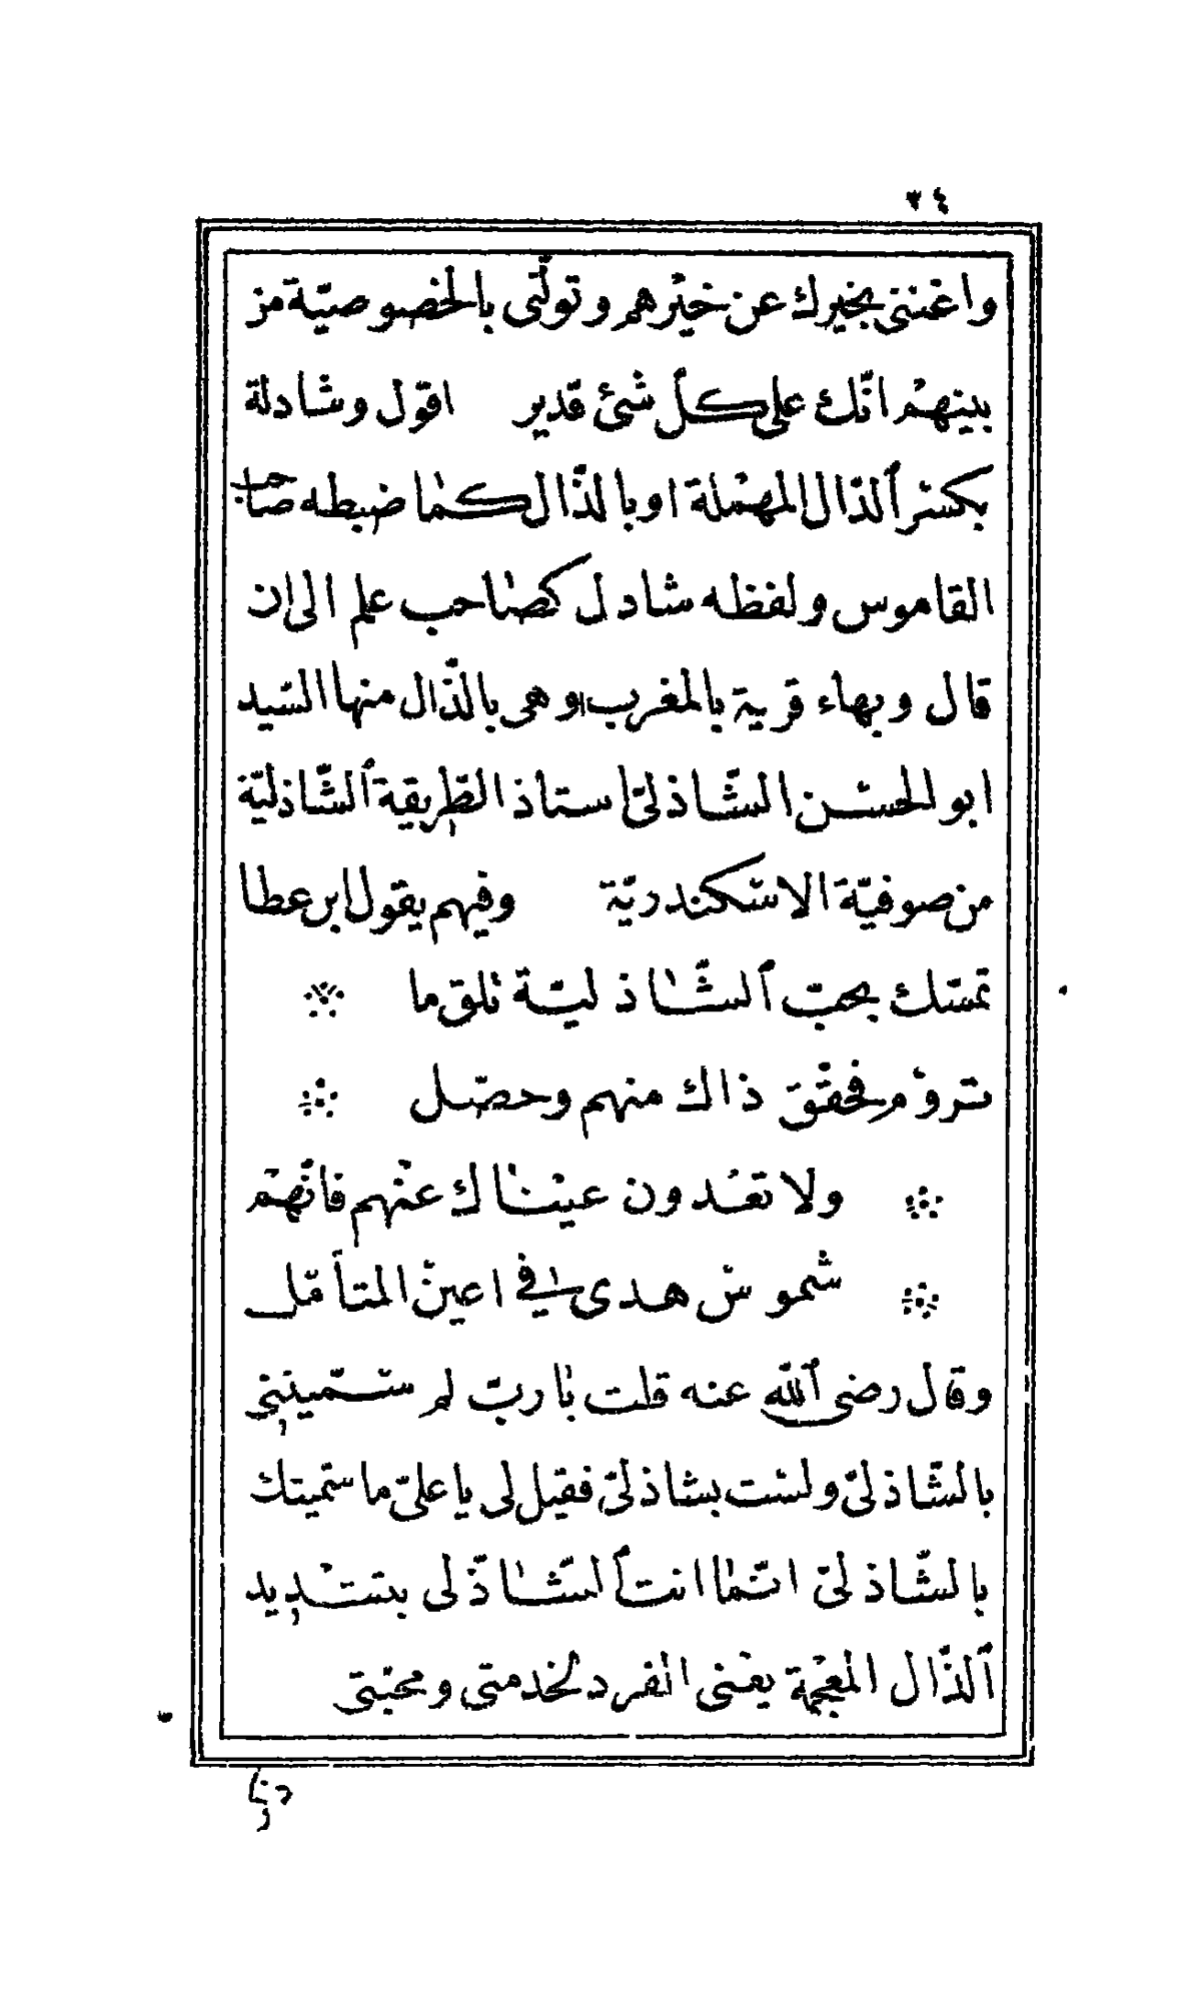 ٣٤
واغننى بخيرك عن خيرهم وتولّنى بالخصوصيّة من
بينهم انّك على كلّ شئ قدير اقول وشادلة
بكسر الدّال المهملة اوبالذّال كما ضبطه صاحب
القاموس ولفظه شادل كصاحب علم الى ان
قال وبهاء قرية بالمغرب او هى بالذّال منها السّيد
ابو الحسن الشّاذلىّ استاذ الطّريقة الشّاذليّة
من صوفيّة الاسكندريّة وفيهم يقول ابن عطا
تمسّك بحبّ الشّاذليّة تلق ما
تروم فحقّق ذاك منهم وحصّل
ولا تعدون عيناك عنهم فانّهم
شموس هدى فى اعين المتأمّل
وقال رضى الله عنه قلت يا ربّ لم سمّيتنى
بالشّاذلىّ ولست بشاذلىّ فقيل لى يا علىّ ما سمّيتك
بالشّاذلىّ انّما انت الشّاذّ لى بتشديد
الذّال المعجمة يعنى المفرد لخدمتى ومحبّتى